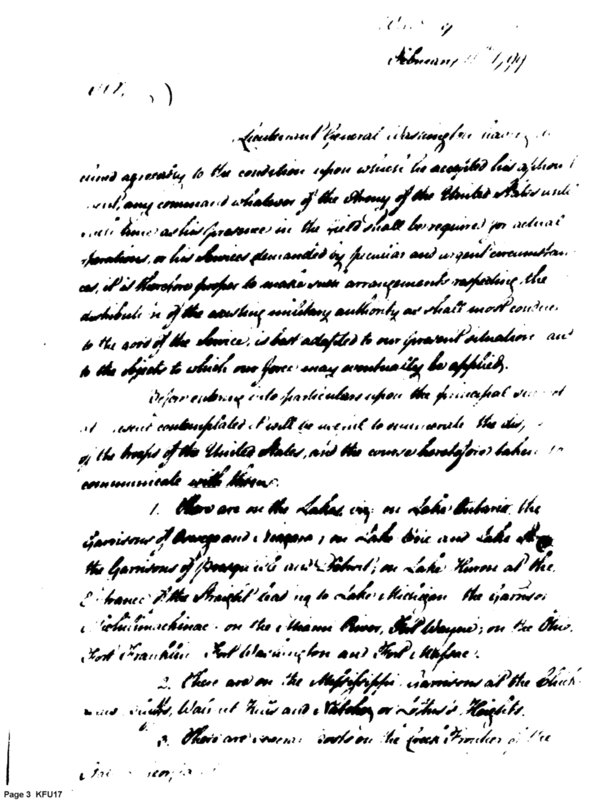 February 1799
Lieutenant General Washington having
agreeably to the condition upon which he accepted his
any command whatever of the Army of the United States until
time as his presence in the field shall be required for actual
operations, or his services demanded by peculiar and urgent circumstan
ces, it is therefore proper to make such arrangements respecting the
distribution of the existing military authority as shall most conduce
to the good of the Service, is best adapted to our present situation and
to the objects to which our force may eventually be applied.
Before entering into particulars upon the principal
contemplated it will be to enumerate the
of the troops of the United States, and the course heretofore taken to
communicate with them.
1. There are on the Lakes, viz: on Lake Ontario, the
Garrisons of Oswego and Niagara; on Lake Erie and Lake
the Garrisons of and Detroit; on Lake Huron at the
Entrance of the Straight leading to Lake Michigan the Garrison
Michilimackinac. on the Miami River, Fort Wayne; on the Ohio
Fort Franklin Fort Washington and Fort Massac.
2. There are on the Mississippi Garrisons at the Chick
Bluffs, Walnut Hills and Natchez or Heights.
3. There are several posts on the Frontier of the
Georgia
Page 3 KFU17